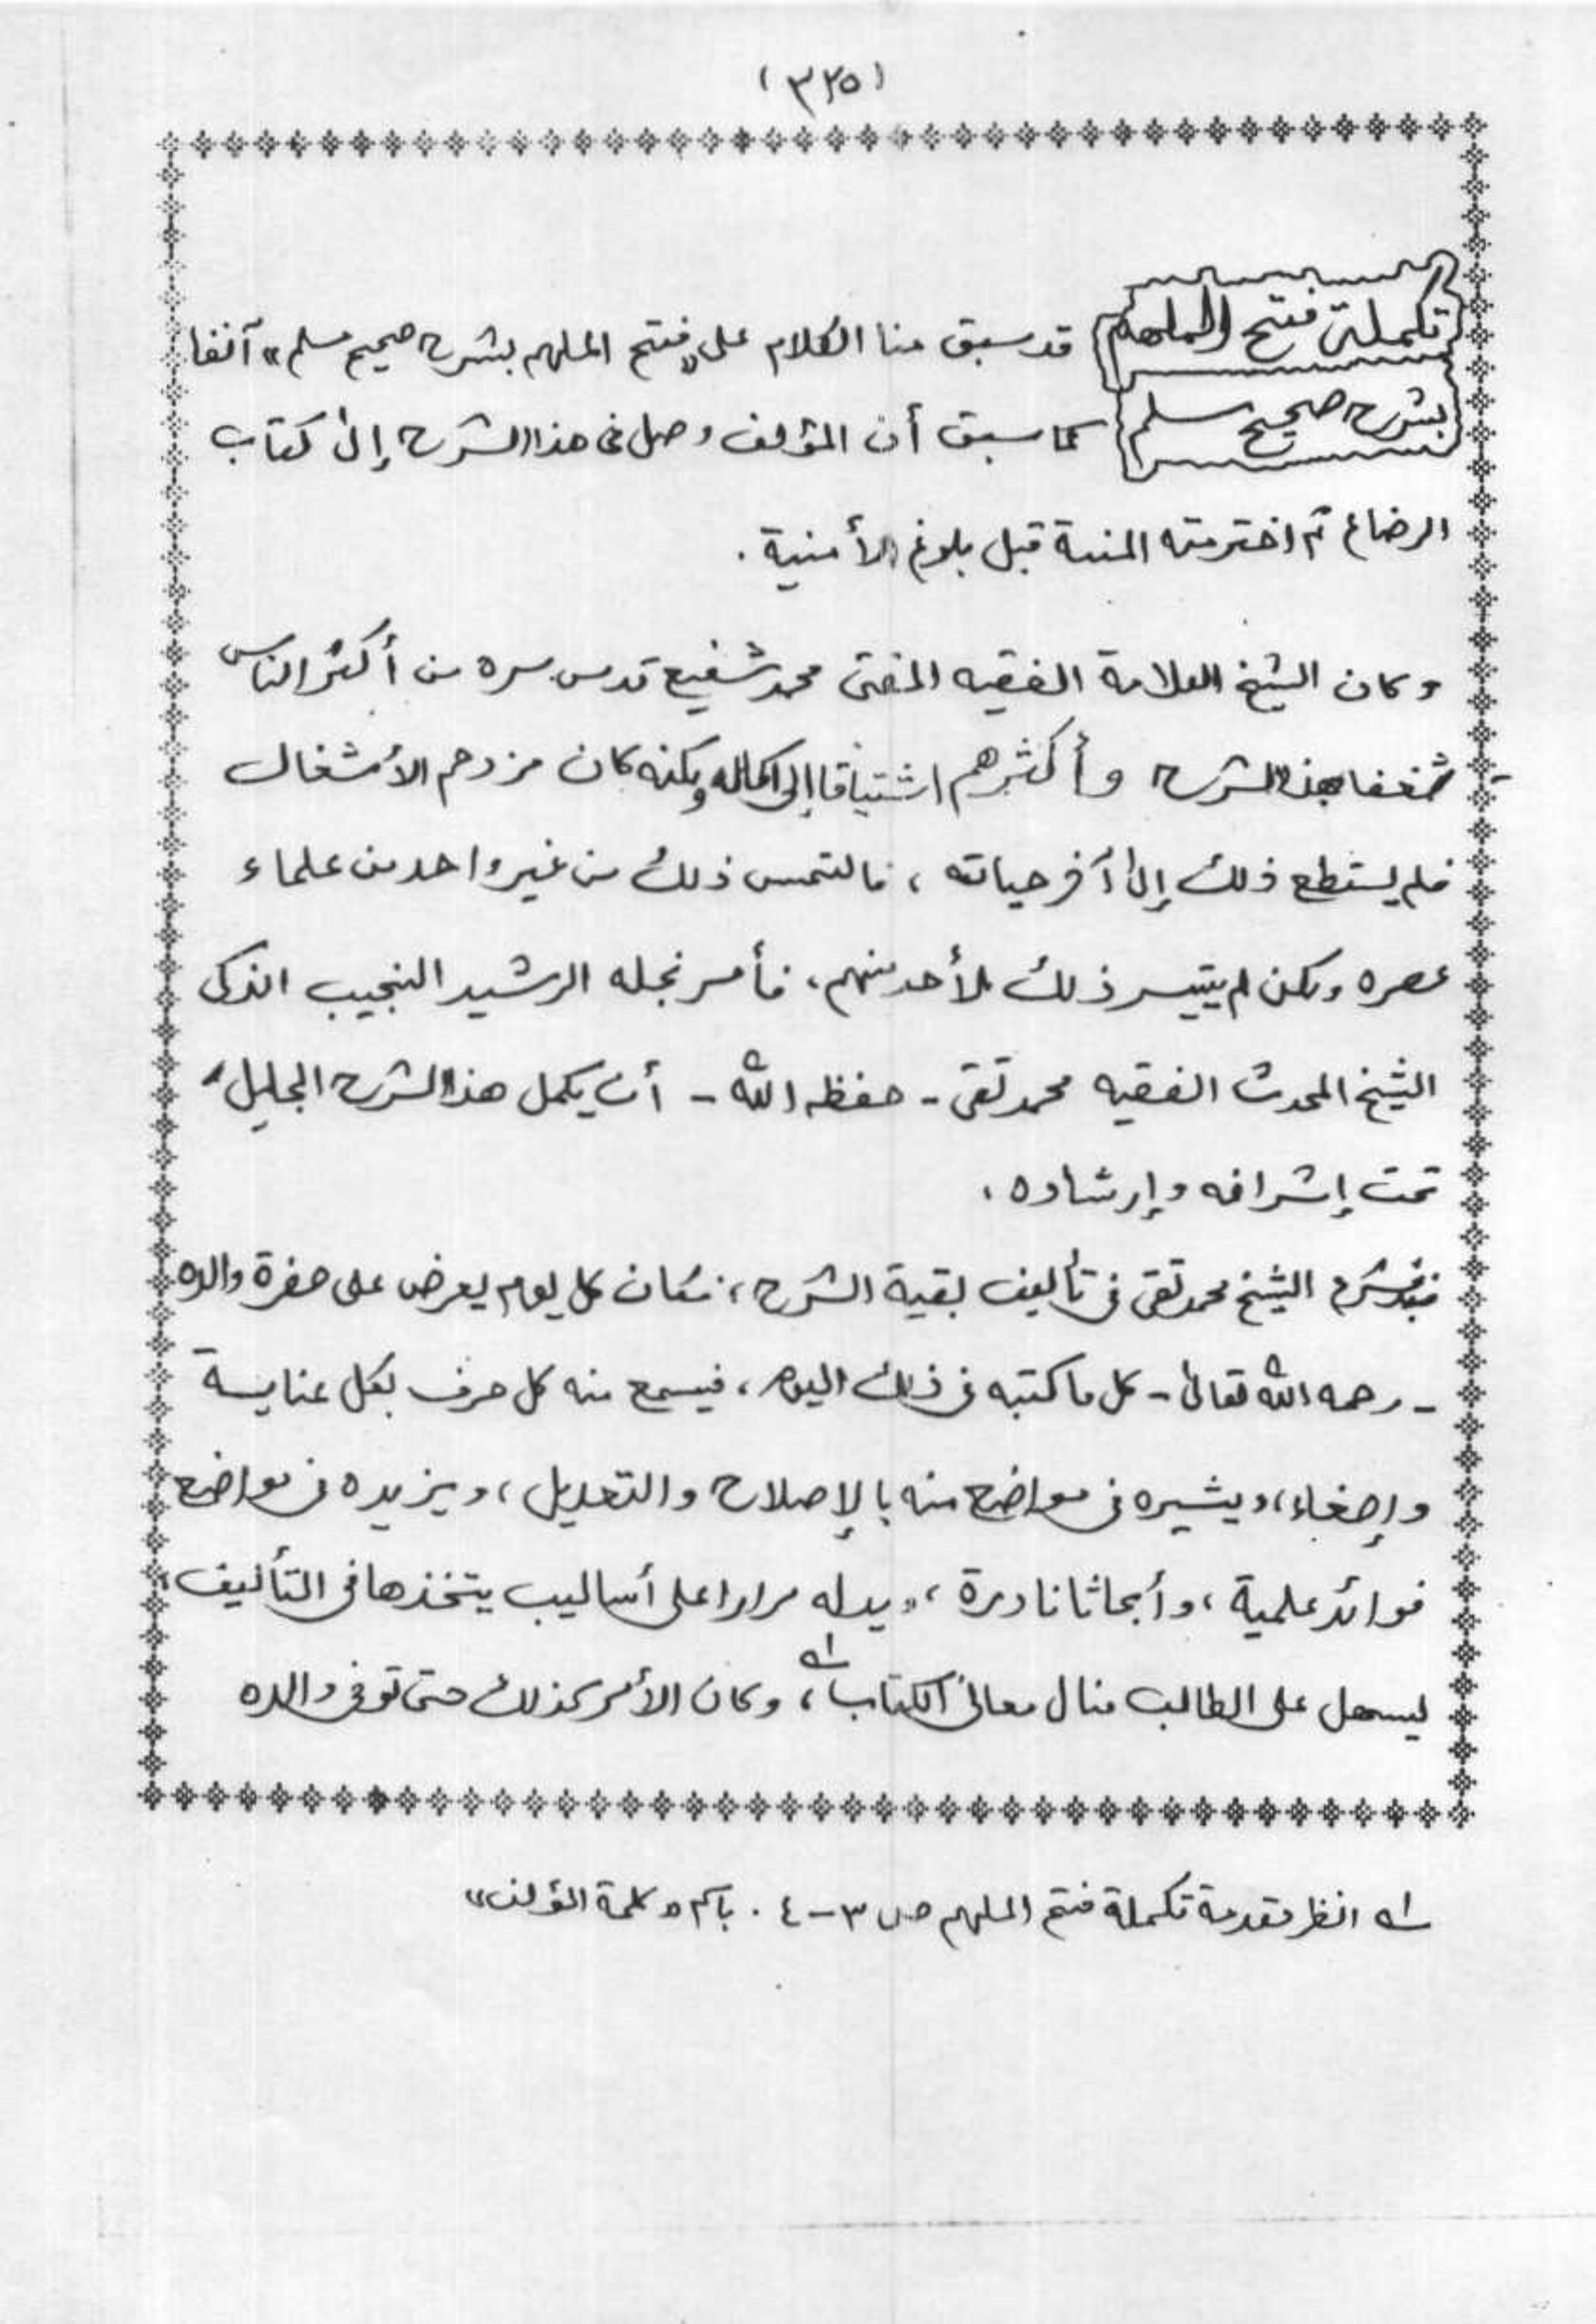 (٣٢٥)
تكملة فتح الملهم قد سبق منا الكلام على «فتح الملهم بشرح صحيح مسلم» آنفا
بشرح صحيح مسلم كما سبق أن المؤلف وصل في هذا الشرح إلى كتاب
الرضاع ثم اخترمته المنية قبل بلوغ الأمنية .
وكان الشيخ العلامة الفقيه المفتى محمد شفيع قدس سره من أكثر الناس
شغفا بهذا الشرح وأكثرهم اشتياقا إلى اكماله ولكنه كان مزدحم الأشغال
فلم يستطع ذلك إلى آخر حياته ، فالتمس ذلك من غير واحد من علماء
عصره ولكن لم يتيسر ذلك لأحد منهم، فأمر نجله الرشيد النجيب الذكى
الشيخ المحدث الفقيه محمد تقى - حفظه الله - أن يكمل هذا الشرح الجليل
تحت إشرافه وإرشاده .
فشرع الشيخ محمد تقى فى تأليف بقية الشرح ، فكان كل يوم يعرض على حضرة والده
- رحمه الله تعالى - كل ما كتبه فى ذلك اليوم ، فيسمع منه كل حرف بكل عناية
وإصغاء ، ويشيره فى مواضع منه بالإصلاح والتعديل ، ويزيده فى مواضع
فوائد علمية ، وأبحاثا نادرة ، ويدله مرارا على أساليب يتخذها فى التأليف
ليسهل على الطالب منال معانى الكتاب ،١ـه وكان الأمر كذلك حتى توفى والده
١ـه انظر مقدمة تكملة فتح الملهم ص ٣-٤ . باسم «كلمة المؤلف»